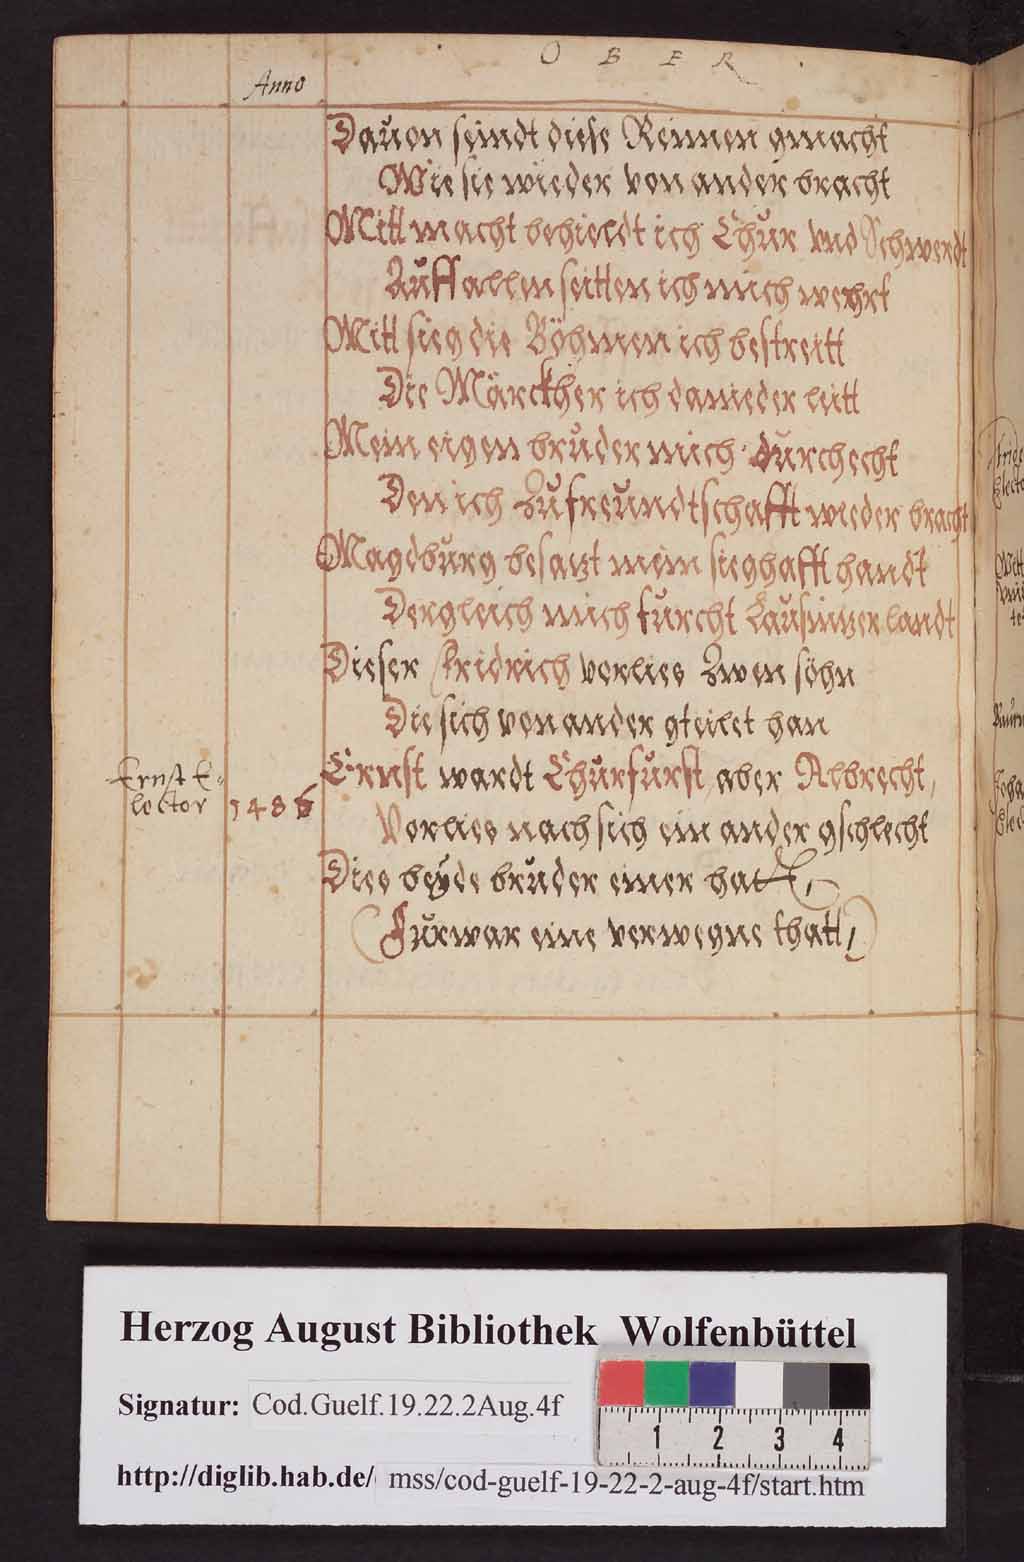 OBER
Anno
Dauon seindt diese Reimen gmacht
Wie sie wieder von ander bracht
Mitt macht behieldt ich Chur vnd Schwerdt
Auff allen seitten ich mich wehrt
Mitt sieg die Böhmen ich bestreitt
Die Märckher ich danieder leitt
Mein eigen bruder mich durchecht
Den ich Zu freundtschafft wieder bracht
Magdburg besatzt mein sieghafft handt
Dergleich mich furcht Lausinzer landt
Dieser Fridrich verlies Zwen söhn
Die sich von ander gteilet han
Ernst E-
lector 1486
Ernst wardt Churfurst, aber Albrecht,
Verlies nach sich ein ander gschlecht
Dies beyde bruder einer hatt,
(Furwar eine verwegne thatt,)
Herzog August Bibliothek Wolfenbüttel
Signatur: Cod.Guelf.19.22.2Aug.4f
1 2 3 4
http://diglib.hab.de/ mss/cod-guelf-19-22-2-aug-4f/start.htm